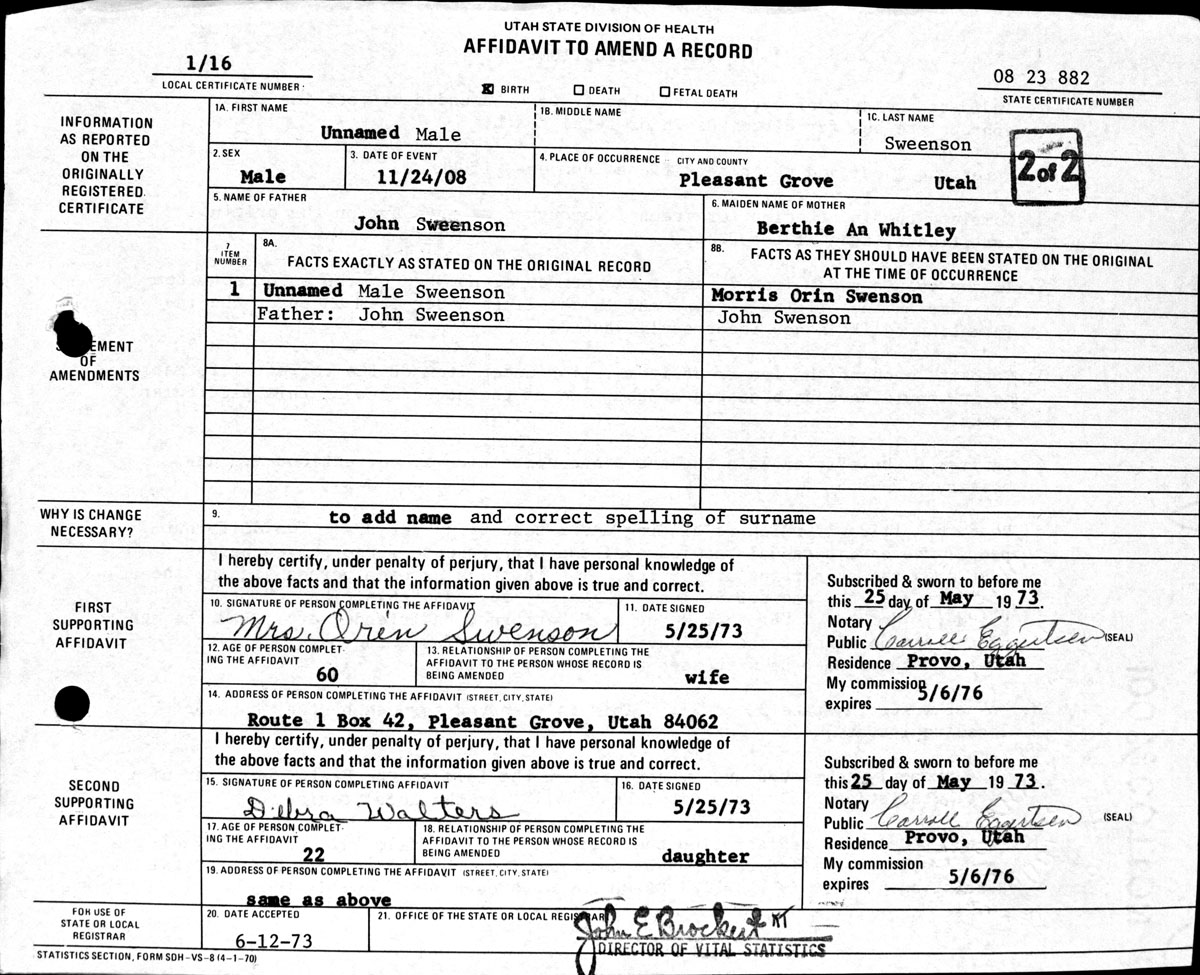 UTAH STATE DIVISION OF HEALTH
AFFIDAVIT TO AMEND A RECORD
1/16
LOCAL CERTIFICATE NUMBER:
☒ BIRTH ☐ DEATH ☐ FETAL DEATH
08 23 882
STATE CERTIFICATE NUMBER
INFORMATION
AS REPORTED
ON THE
ORIGINALLY
REGISTERED
CERTIFICATE
1A. FIRST NAME
Unnamed Male
1B. MIDDLE NAME
1C. LAST NAME
Sweenson
2 of 2
2. SEX
Male
3. DATE OF EVENT
11/24/08
4. PLACE OF OCCURRENCE - CITY AND COUNTY
Pleasant Grove Utah
5. NAME OF FATHER
John Sweenson
6. MAIDEN NAME OF MOTHER
Berthie An Whitley
EMENT
OF
AMENDMENTS
7
ITEM
NUMBER
8A.
FACTS EXACTLY AS STATED ON THE ORIGINAL RECORD
8B.
FACTS AS THEY SHOULD HAVE BEEN STATED ON THE ORIGINAL
AT THE TIME OF OCCURRENCE
1 Unnamed Male Sweenson Morris Orin Swenson
Father: John Sweenson John Swenson
WHY IS CHANGE
NECESSARY?
9.
to add name and correct spelling of surname
FIRST
SUPPORTING
AFFIDAVIT
I hereby certify, under penalty of perjury, that I have personal knowledge of
the above facts and that the information given above is true and correct.
10. SIGNATURE OF PERSON COMPLETING THE AFFIDAVIT
Mrs. Orin Swenson
11. DATE SIGNED
5/25/73
12. AGE OF PERSON COMPLET-
ING THE AFFIDAVIT
60
13. RELATIONSHIP OF PERSON COMPLETING THE
AFFIDAVIT TO THE PERSON WHOSE RECORD IS
BEING AMENDED
wife
14. ADDRESS OF PERSON COMPLETING THE AFFIDAVIT (STREET, CITY, STATE)
Route 1 Box 42, Pleasant Grove, Utah 84062
Subscribed & sworn to before me
this 25 day of May 19 73.
Notary
Public Carroll Eggertsen (SEAL)
Residence Provo, Utah
My commission
expires 5/6/76
SECOND
SUPPORTING
AFFIDAVIT
I hereby certify, under penalty of perjury, that I have personal knowledge of
the above facts and that the information given above is true and correct.
15. SIGNATURE OF PERSON COMPLETING AFFIDAVIT
Debra Walters
16. DATE SIGNED
5/25/73
17. AGE OF PERSON COMPLET-
ING THE AFFIDAVIT
22
18. RELATIONSHIP OF PERSON COMPLETING THE
AFFIDAVIT TO THE PERSON WHOSE RECORD IS
BEING AMENDED
daughter
19. ADDRESS OF PERSON COMPLETING THE AFFIDAVIT (STREET, CITY, STATE)
same as above
Subscribed & sworn to before me
this 25 day of May 19 73.
Notary
Public Carroll Eggertsen (SEAL)
Residence Provo, Utah
My commission
expires 5/6/76
FOR USE OF
STATE OR LOCAL
REGISTRAR
20. DATE ACCEPTED
6-12-73
21. OFFICE OF THE STATE OR LOCAL REGISTRAR
John E Brockert KT
DIRECTOR OF VITAL STATISTICS
STATISTICS SECTION, FORM SDH-VS-8 (4-1-70)